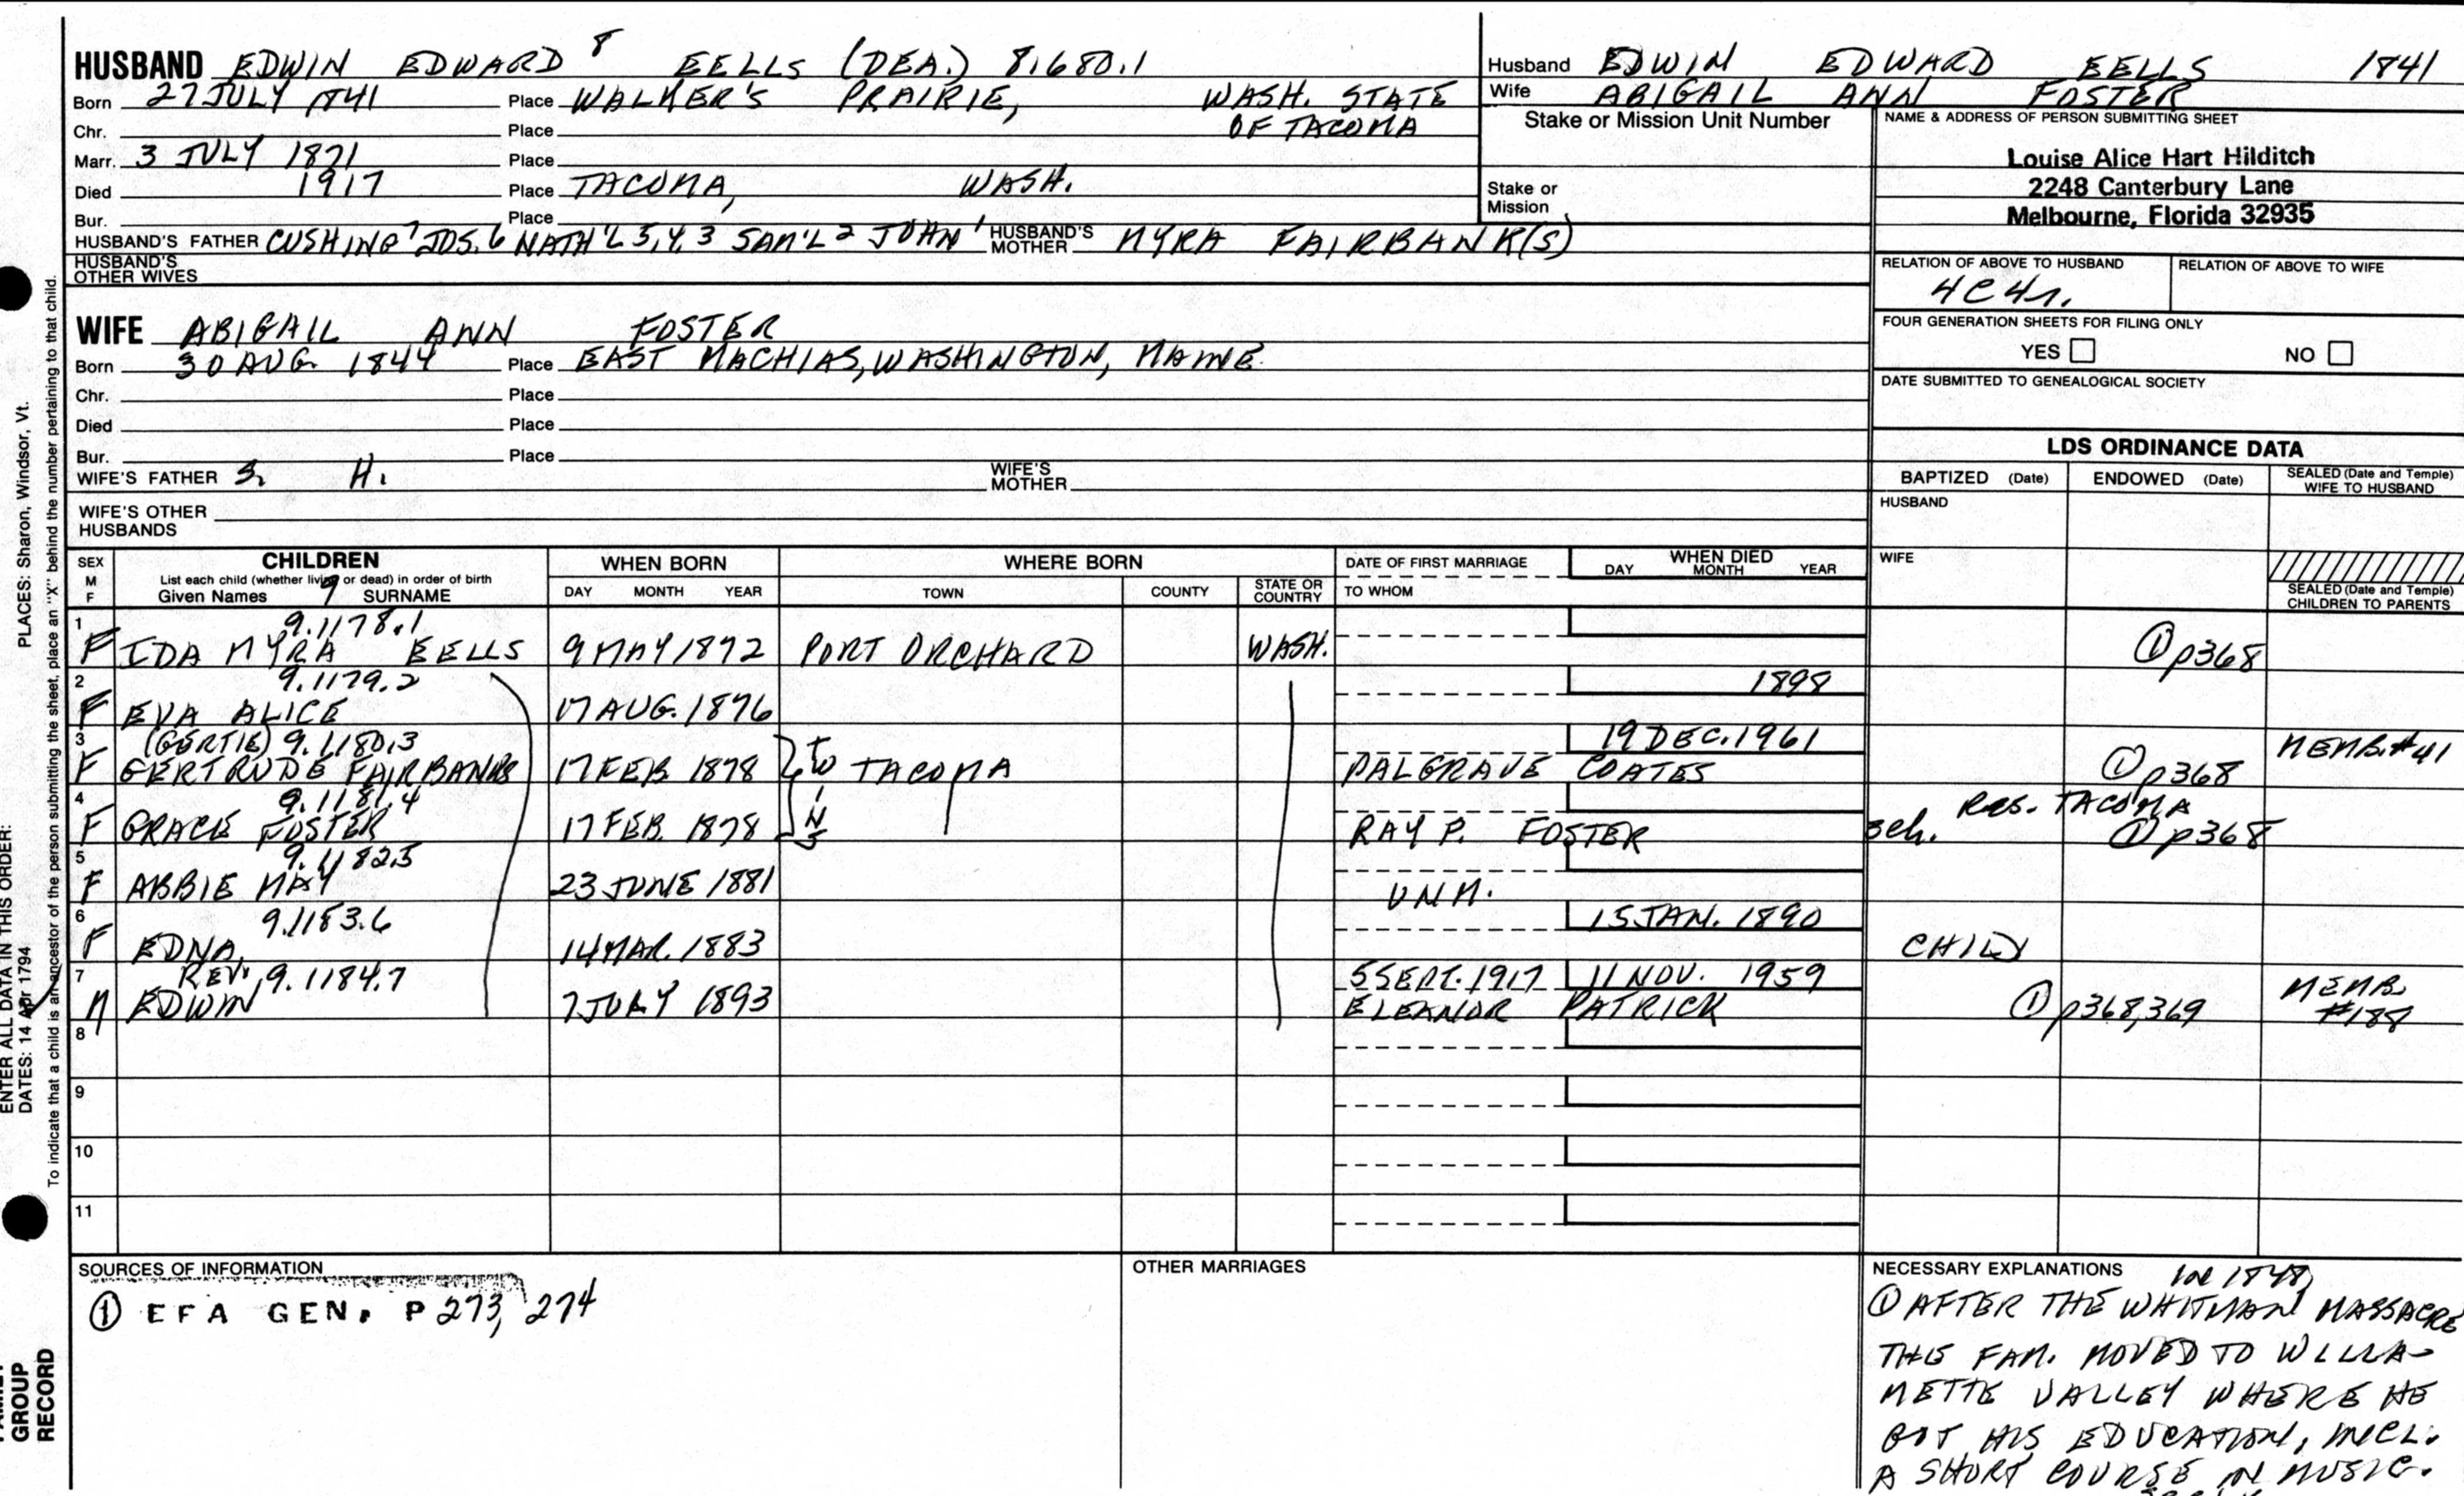 HUSBAND EDWIN EDWARD 8 EELLS (DEA.) 8.680.1
Born 27 JULY 1841 Place WALKER'S PRAIRIE, WASH. STATE
Chr. Place OF TACOMA
Marr. 3 JULY 1871 Place
Died 1917 Place TACOMA, WASH.
Bur. Place
HUSBAND'S FATHER CUSHING 7 JOS. 6 NATH'L 5, 4, 3 SAM'L 2 JOHN 1 HUSBAND'S MOTHER MYRA FAIRBANK(S)
HUSBAND'S OTHER WIVES
Husband EDWIN EDWARD EELLS 1841
Wife ABIGAIL ANN FOSTER
Stake or Mission Unit Number
Stake or Mission
NAME & ADDRESS OF PERSON SUBMITTING SHEET
Louise Alice Hart Hilditch
2248 Canterbury Lane
Melbourne, Florida 32935
RELATION OF ABOVE TO HUSBAND RELATION OF ABOVE TO WIFE
4C4r.
FOUR GENERATION SHEETS FOR FILING ONLY
YES NO
DATE SUBMITTED TO GENEALOGICAL SOCIETY
WIFE ABIGAIL ANN FOSTER
Born 30 AUG. 1844 Place EAST MACHIAS, WASHINGTON, MAINE
Chr. Place
Died Place
Bur. Place
WIFE'S FATHER S. H. WIFE'S MOTHER
WIFE'S OTHER HUSBANDS
LDS ORDINANCE DATA
BAPTIZED (Date) ENDOWED (Date) SEALED (Date and Temple) WIFE TO HUSBAND
HUSBAND
WIFE
SEALED (Date and Temple) CHILDREN TO PARENTS
SEX M F CHILDREN WHEN BORN WHERE BORN DATE OF FIRST MARRIAGE WHEN DIED
List each child (whether living or dead) in order of birth DAY MONTH YEAR
Given Names 9 SURNAME DAY MONTH YEAR TOWN COUNTY STATE OR COUNTRY TO WHOM
1 9.1178.1
F IDA MYRA EELLS 9 MAY 1872 PORT ORCHARD WASH. ① p368
2 9.1179.2 1898
F EVA ALICE 17 AUG. 1876
3 (GERTIE) 9.1180.3 19 DEC. 1961 MEMB. #41
F GERTRUDE FAIRBANKS 17 FEB 1878 TWINS TACOMA PALGRAVE COATES ① p368
4 9.1181.4 Res. TACOMA
F GRACE FOSTER 17 FEB. 1878 RAY P. FOSTER 3ch. ① p368
5 9.1182.5
F ABBIE MAY 23 JUNE 1881 UNM.
6 9.1183.6 15 JAN. 1890
F EDNA 14 MAR. 1883 CHILD
7 REV. 9.1184.7 5 SEPT. 1917 11 NOV. 1959 MEMB. #188
M EDWIN 7 JULY 1893 ELEANOR PATRICK ① p368,369
8
9
10
11
SOURCES OF INFORMATION
① EFA GEN. P 273, 274
OTHER MARRIAGES
NECESSARY EXPLANATIONS in 1848,
① AFTER THE WHITMAN MASSACRE
THE FAM. MOVED TO WILLA-
METTE VALLEY WHERE HE
GOT HIS EDUCATION, INCL.
A SHORT COURSE IN MUSIC.
ENTER ALL DATA IN THIS ORDER:
DATES: 14 Apr 1794 PLACES: Sharon, Windsor, Vt.
To indicate that a child is an ancestor of the person submitting the sheet, place an "X" behind the number pertaining to that child.
GROUP
RECORD